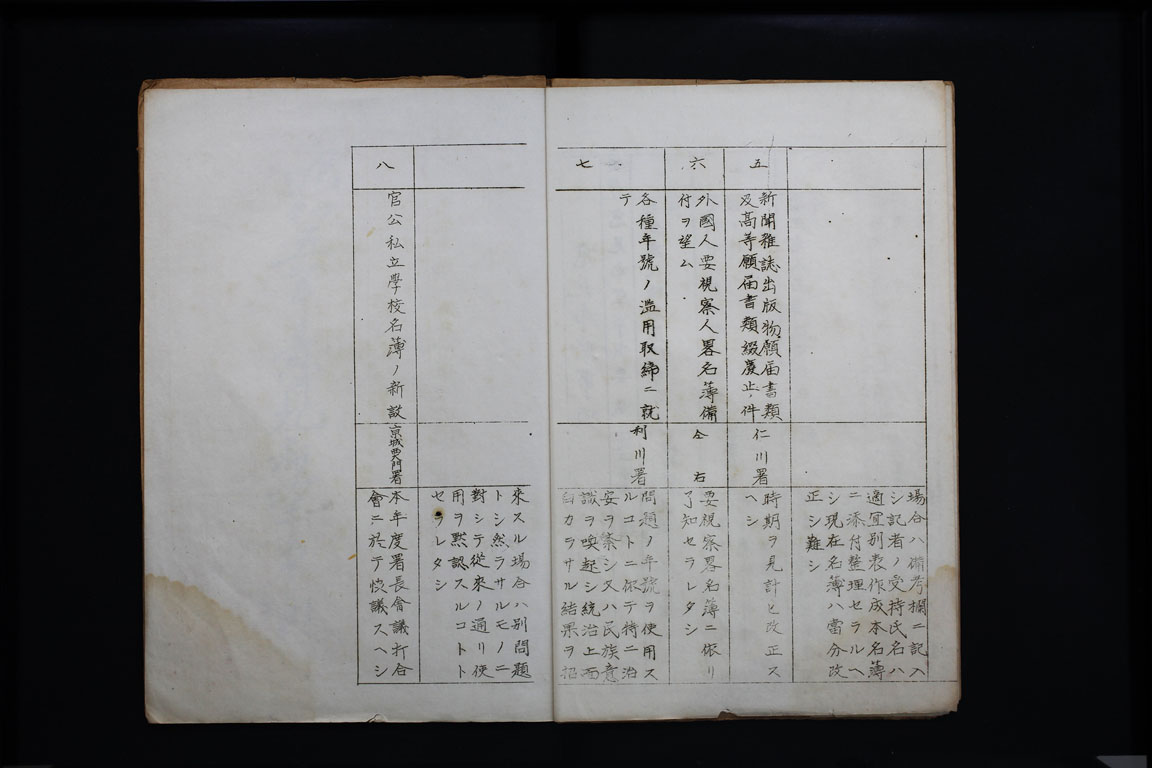 場合ハ備考欄ニ記入
シ記者ノ受持氏名ハ
適宜別表作成本名簿
ニ添付整理セラルヘ
シ現在名簿ハ當分改
正シ難シ
五
新聞雜誌出版物願届書類
及高等願届書類綴廢止ノ件
仁川署
時期ヲ見計ヒ改正ス
ヘシ
六
外國人要視察人畧名簿備
付ヲ望ム
仝右
要視察畧名簿ニ依リ
了知セラレタシ
七
各種年號ノ濫用取締ニ就
テ
利川署
問題ノ年號ヲ使用ス
ルコトニ依テ特ニ治
安ヲ紊シ又ハ民族意
識ヲ喚起シ統治上面
白カラサル結果ヲ招
來スル場合ハ別問題
トシ然ラサルモノニ
對シテ從來ノ通リ使
用ヲ黙認スルコトト
セラレタシ
八
官公私立學校名薄ノ新設
京城西大門署
本年度署長會議打合
會ニ於テ協議スヘシ